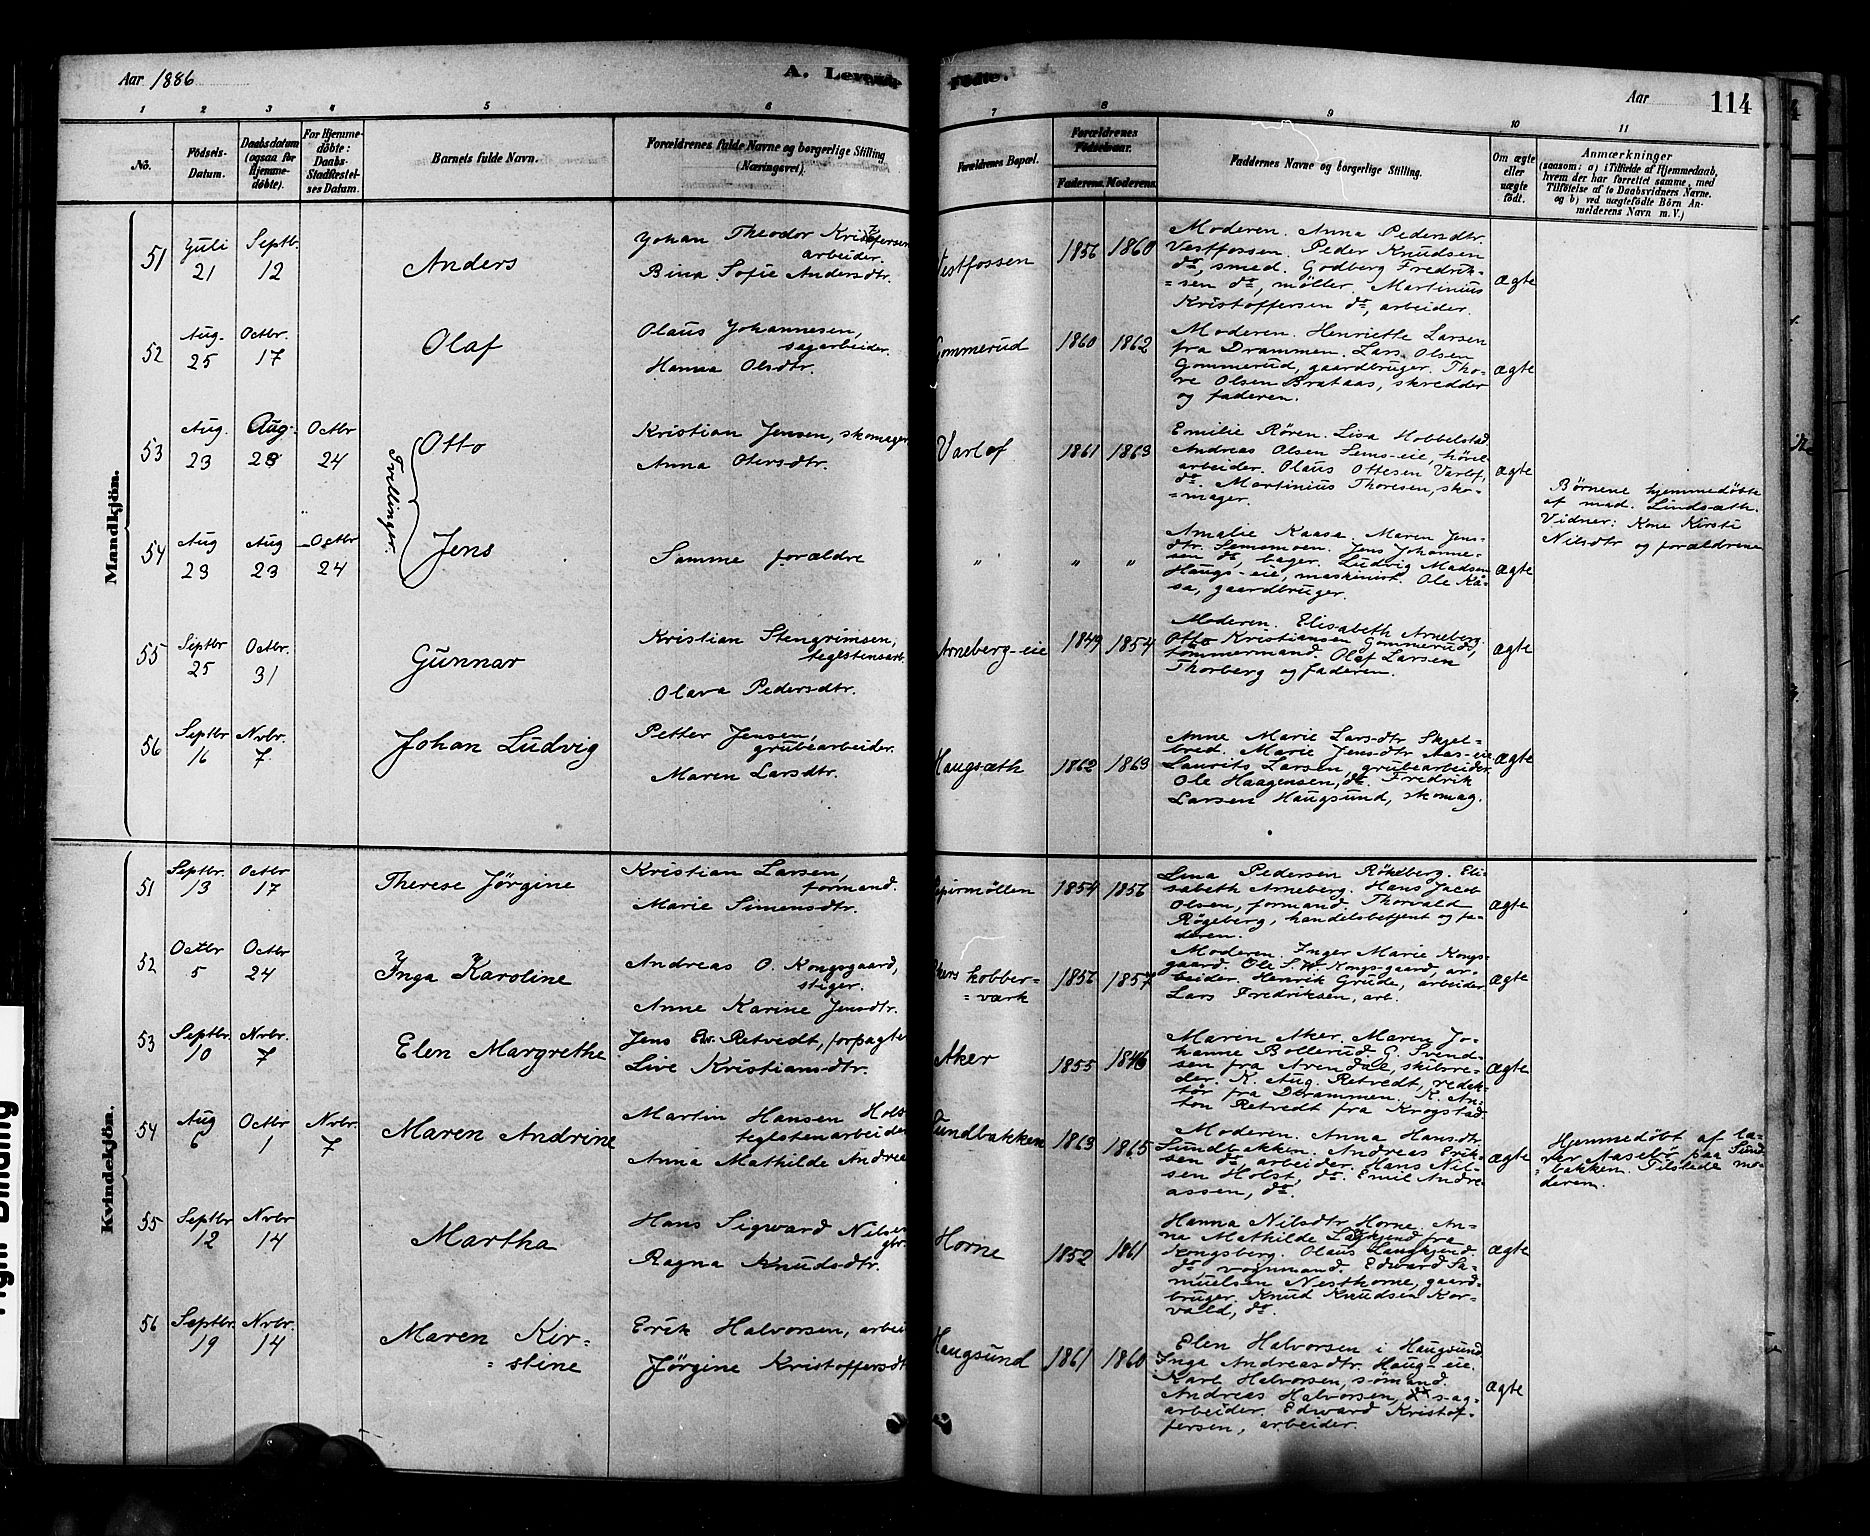 Aar 1886
A. Levende
Fødte.
Aar
114
1 2 3 4 5 6 7 8 9 10 11
No.
Fødsels-
Datum.
Daabsdatum
(ogsaa for
Hjemme-
döbte).
For Hjemme-
döbte:
Daabs-
Stadfæstel-
ses Datum.
Barnets fulde Navn.
Forældrenes fulde Navne og borgerlige Stilling
(Næringsvei).
Forældrenes Bopæl.
Forældrenes
Födselsaar.
Faderens. Moderens.
Faddernes Navne og borgerlige Stilling.
Om ægte
eller
uægte
födt.
Anmærkninger
(saasom: a) i Tilfælde af Hjemmedaab,
hvem der har forrettet samme, med
Tilföielse af to Daabsvidners Navne.
og b) ved uægtefödte Börn An-
melderens Navn m.V.)
Mandkjön.
51
Juli
21
Septb.
12
Anders
Johan Theodor Kristofersen
arbeider.
Bina Sofie Andersdtr.
Vestfossen
1856 1860
Moderen. Anna Pedersdtr.
Vestfossen. Peder Knudsen
do, smed. Godberg Fredrik-
=sen do, møller. Martinius
Kristoffersen do, arbeider.
Ægte
52
Aug.
25
Octbr.
17
Olaf
Olaus Johannesen,
sagarbeider.
Hanna Olsdtr.
Gommerud
1860 1862
Moderen. Henriette Larsen
fra Drammen. Lars Olsen
Gommerud, gaardbruger. Tho-
re Olsen Brataas, skredder
og faderen.
Ægte
53
Aug.
23
Aug.
23
Octbr
24
Otto
Trillinger.
Kristian Jensen, skomager
Anna Ottersdtr.
Varlof
1861 1863
Emilie Røren. Lisa Hobbelstad.
Andreas Olsen Sems-eie,
arbeider. Olaus Ottesen Varlof,
do. Martinius Thoresen, sko-
=mager.
Ægte
Børnene hjemmedøbte
af mad. Lindsæth.
Vidner: Kone Kirsti
Nilsdtr og forældrene
54
Aug
23
Aug
23
Octbr
24
Jens
Samme forældre
" " "
Amalie Kaasa. Maren Jens-
dtr. Semsmoen. Jens Johanne-
sen do, bager. Ludvig Madsen
Haugs-eie, maskinist. Ole Kå-
sa, gaardbruger.
Ægte
55
Septbr
25
Octbr.
31
Gunnar
Kristian Stengrimsen,
teglstensarb.
Olava Pedersdtr.
Arneberg-eie
1849 1854
Moderen. Elisabeth Arneberg.
Otto Kristiansen Gommerud,
tømmermand. Olaf Larsen
Thorberg og faderen.
Ægte
56
Septbr
16
Nvbr.
7.
Johan Ludvig
Petter Jensen,
grubearbeider.
Maren Larsdtr.
Haugsæth
1862 1863
Anne Marie Larsdtr Skjel-
bred. Marie Jensdtr Aas-eie
Laurits Larsen, grubearbeider.
Ole Haagensen, do. Fredrik
Larsen Haugsund, skomag.
Ægte
Kvindekjön.
51
Septbr.
13
Octbr
17
Therese Jørgine
Kristian Larsen,
formand.
Marie Simensdtr.
Papirmøllen
1854 1856
Lina Pedersen Røkeberg. Eli-
sabeth Arneberg. Hans Jacob
Olsen, formand. Thorvald
Røgeberg, handelsbetjent og fa-
deren.
Ægte
52
Octbr
5
Octbr
24
Inga Karoline
Andreas O. Kongsgaard,
stiger.
Anne Karine Jensdtr.
Ekers kobber-
=værk
1856 1857
Moderen. Inger Marie Kongs-
gaard. Ole S.W. Kongs-gaard, ar-
beider. Henrik Grude, arbeider
Lars Fredriksen, arb.
Ægte
53
Septbr.
10
Nvbr.
7
Elen Margrethe
Jens Retvedt, forpagter
Live Kristiansdtr.
Aker
1855 1846
Maren Aker. Maren Jo-
hanne Bollerud. G. Svend-
sen fra Arendal, skibsre-
der. K. Aug. Retvedt, redek-
tør fra Drammen. K. An-
ton Retvedt fra Krogstad
Ægte
54
Aug
6
Octbr
1
Nvbr.
7
Maren Andrine
Martin Hansen Holst
teglstenarbeider
Anna Mathilde Andrea
Sundbakken
1863 1865
Moderen. Anna Hansdtr.
Sundbakken. Andreas Erik-
sen do arbeider. Hans Nil-
sen Holst, do. Emil Andre-
assen, do.
Ægte
Hjemmedøbt af læ-
rer Aasebø paa Sund-
=bakken. Tilstede mo-
deren.
55
Septbr
12
Nvbr
14
Martha
Hans Sigward Nilsen
gbr.
Ragna Knudsdtr.
Horne
1852 1861
Hanna Nilsdtr Horne. An-
ne Mathilde fra
Kongsberg. Olaus
do, vognmand. Edward Sa-
muelsen Nesthorne, gaard-
bruger. Knud Knudsen Kor-
vald, do.
Ægte
56
Septbr.
19
Nvbr.
14
Maren Kir-
=stine
Erik Halvorsen, arbei
Jørgine Kristoffersdt
Haugsund
1861 1860
Elen Halvorsen i Haugsund.
Inga Andreasdtr. Haug-eie.
Karl Halvorsen, sømand.
Andreas Halvorsen, sag-
arbeider. Edward Kristof-
fersen, arbeider.
Ægte